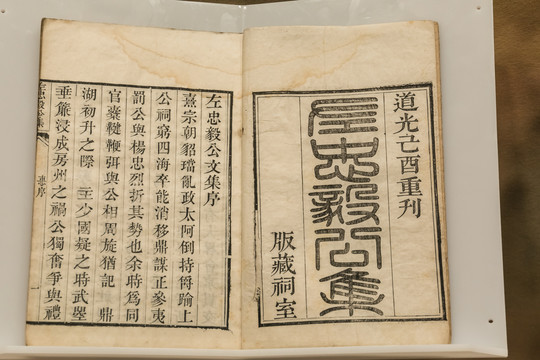 道光己酉重刊
左忠毅公集
版藏祠室
左忠毅公文集序
熹宗朝貂璫亂政太阿倒持踰上
公祠第四海卒能消移鼎謀正參夷
罰公與楊忠烈折其勢也余時為同
官橐鞬鞭弭與公相周旋猶記 鼎
湖初升之際 主少國疑之時武曌
垂簾浸成房州之禍公獨奮爭與禮
左忠毅公集
序